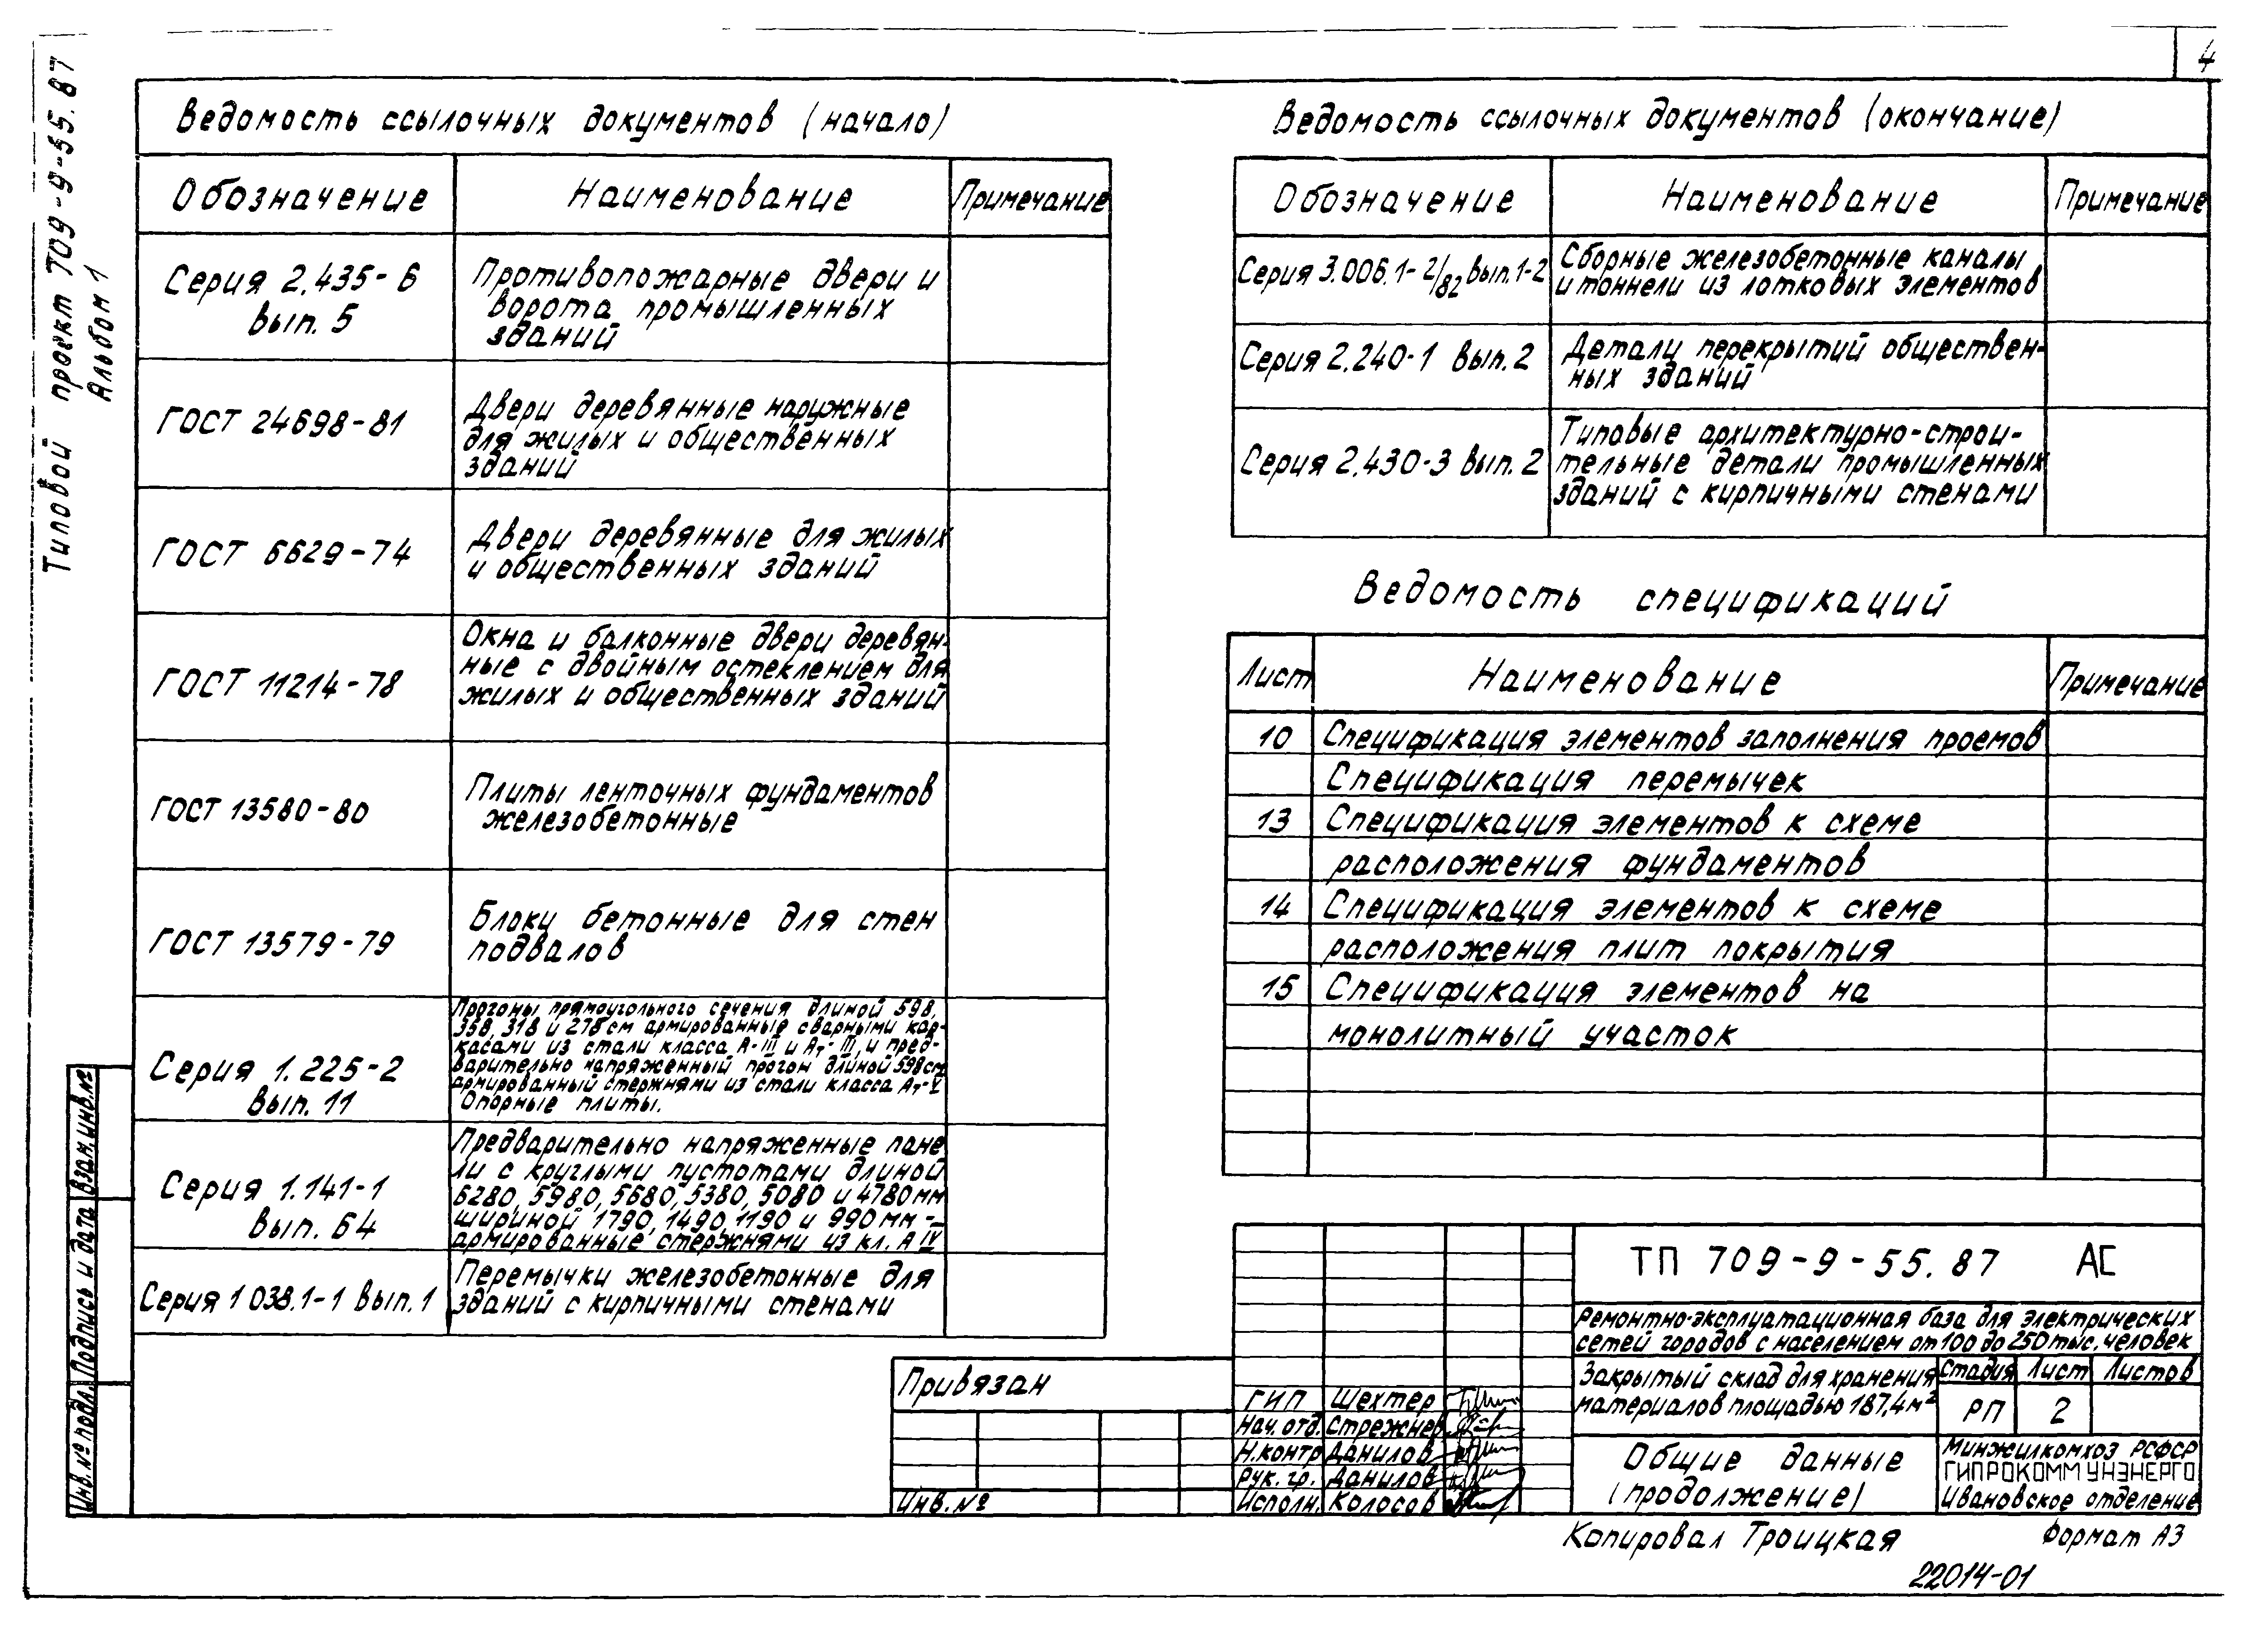 4
Типовой проект 709-9-55.87
Альбом 1
Ведомость ссылочных документов (начало)
Обозначение Наименование Примечание
Серия 2.435-6
вып. 5
Противопожарные двери и
ворота промышленных
зданий
ГОСТ 24698-81
Двери деревянные наружные
для жилых и общественных
зданий
ГОСТ 6629-74
Двери деревянные для жилых
и общественных зданий
ГОСТ 11214-78
Окна и балконные двери деревян-
ные с двойным остеклением для
жилых и общественных зданий
ГОСТ 13580-80
Плиты ленточных фундаментов
железобетонные
ГОСТ 13579-79
Блоки бетонные для стен
подвалов
Серия 1.225-2
вып. 11
Прогоны прямоугольного сечения длиной 598,
358, 318 и 278 см армированные сварными кар-
касами из стали класса А-III и Ат-III, и пред-
варительно напряженный прогон длиной 598см
армированный стержнями из стали класса Ат-V
Опорные плиты.
Серия 1.141-1
вып. 64
Предварительно напряженные пане
ли с круглыми пустотами длиной
6280, 5980, 5680, 5380, 5080 и 4780мм
шириной 1790, 1490, 1190 и 990мм -
армированные стержнями из кл. А IV
Серия 1 038.1-1 вып. 1
Перемычки железобетонные для
зданий с кирпичными стенами
Ведомость ссылочных документов (окончание)
Обозначение Наименование Примечание
Серия 3.006.1-2/82 вып.1-2
Сборные железобетонные каналы
и тоннели из лотковых элементов
Серия 2.240-1 вып. 2
Детали перекрытий обществен-
ных зданий
Серия 2.430-3 вып. 2
Типовые архитектурно-строи-
тельные детали промышленных
зданий с кирпичными стенами
Ведомость спецификаций
Лист Наименование Примечание
10 Спецификация элементов заполнения проемов
Спецификация перемычек
13 Спецификация элементов к схеме
расположения фундаментов
14 Спецификация элементов к схеме
расположения плит покрытия
15 Спецификация элементов на
монолитный участок
Взам. инв. №
Подпись и дата
Инв. № подл.
Привязан
Инв. №
ГИП Шехтер
Нач. отд. Стрежнев
Н.контр Данилов
Рук. гр. Данилов
Исполн. Колосов
ТП 709-9-55.87 АС
Ремонтно-эксплуатационная база для электрических
сетей городов с населением от 100 до 250 тыс. человек
Закрытый склад для хранения
материалов площадью 187,4м²
Стадия Лист Листов
РП 2
Общие данные
(продолжение)
Минжилкомхоз РСФСР
ГИПРОКОММУНЭНЕРГО
Ивановское отделение
Копировал Троицкая Формат А3
22014-01